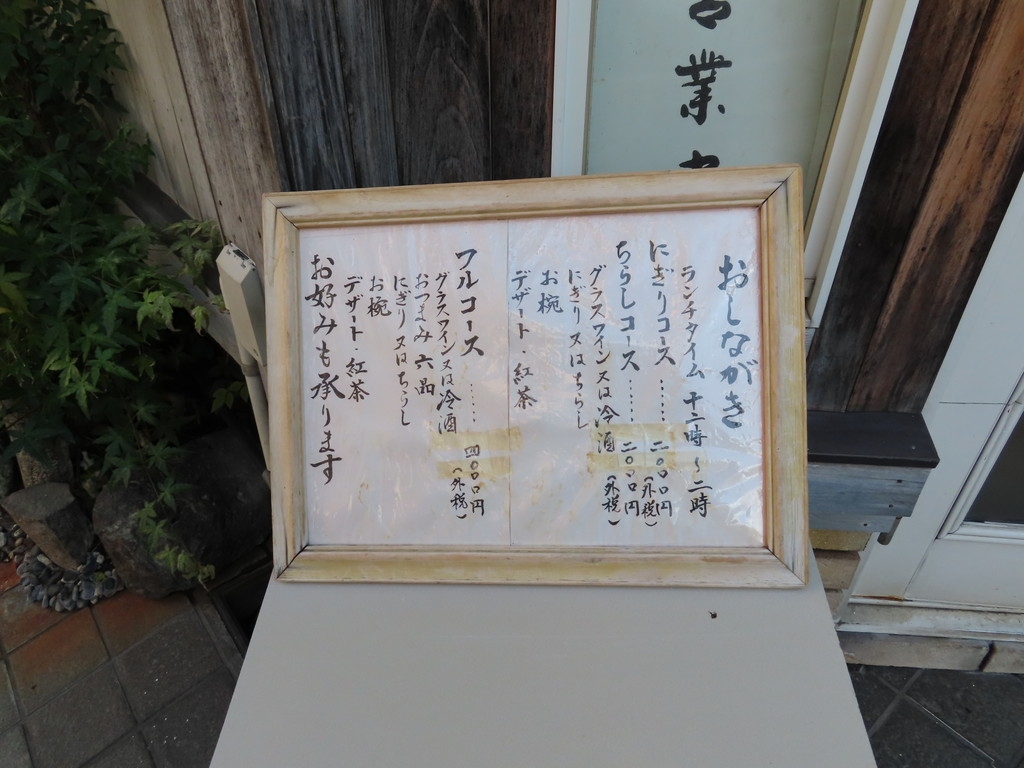 おしながき
ランチタイム 十二時〜二時
にぎりコース …… 二〇〇〇円(外税)
ちらしコース …… 二〇〇〇円(外税)
グラスワイン又は冷酒
にぎり又はちらし
お椀
デザート・紅茶
フルコース …… 四〇〇〇円(外税)
グラスワイン又は冷酒
おつまみ六品
にぎり又はちらし
お椀
デザート・紅茶
お好みも承ります
業